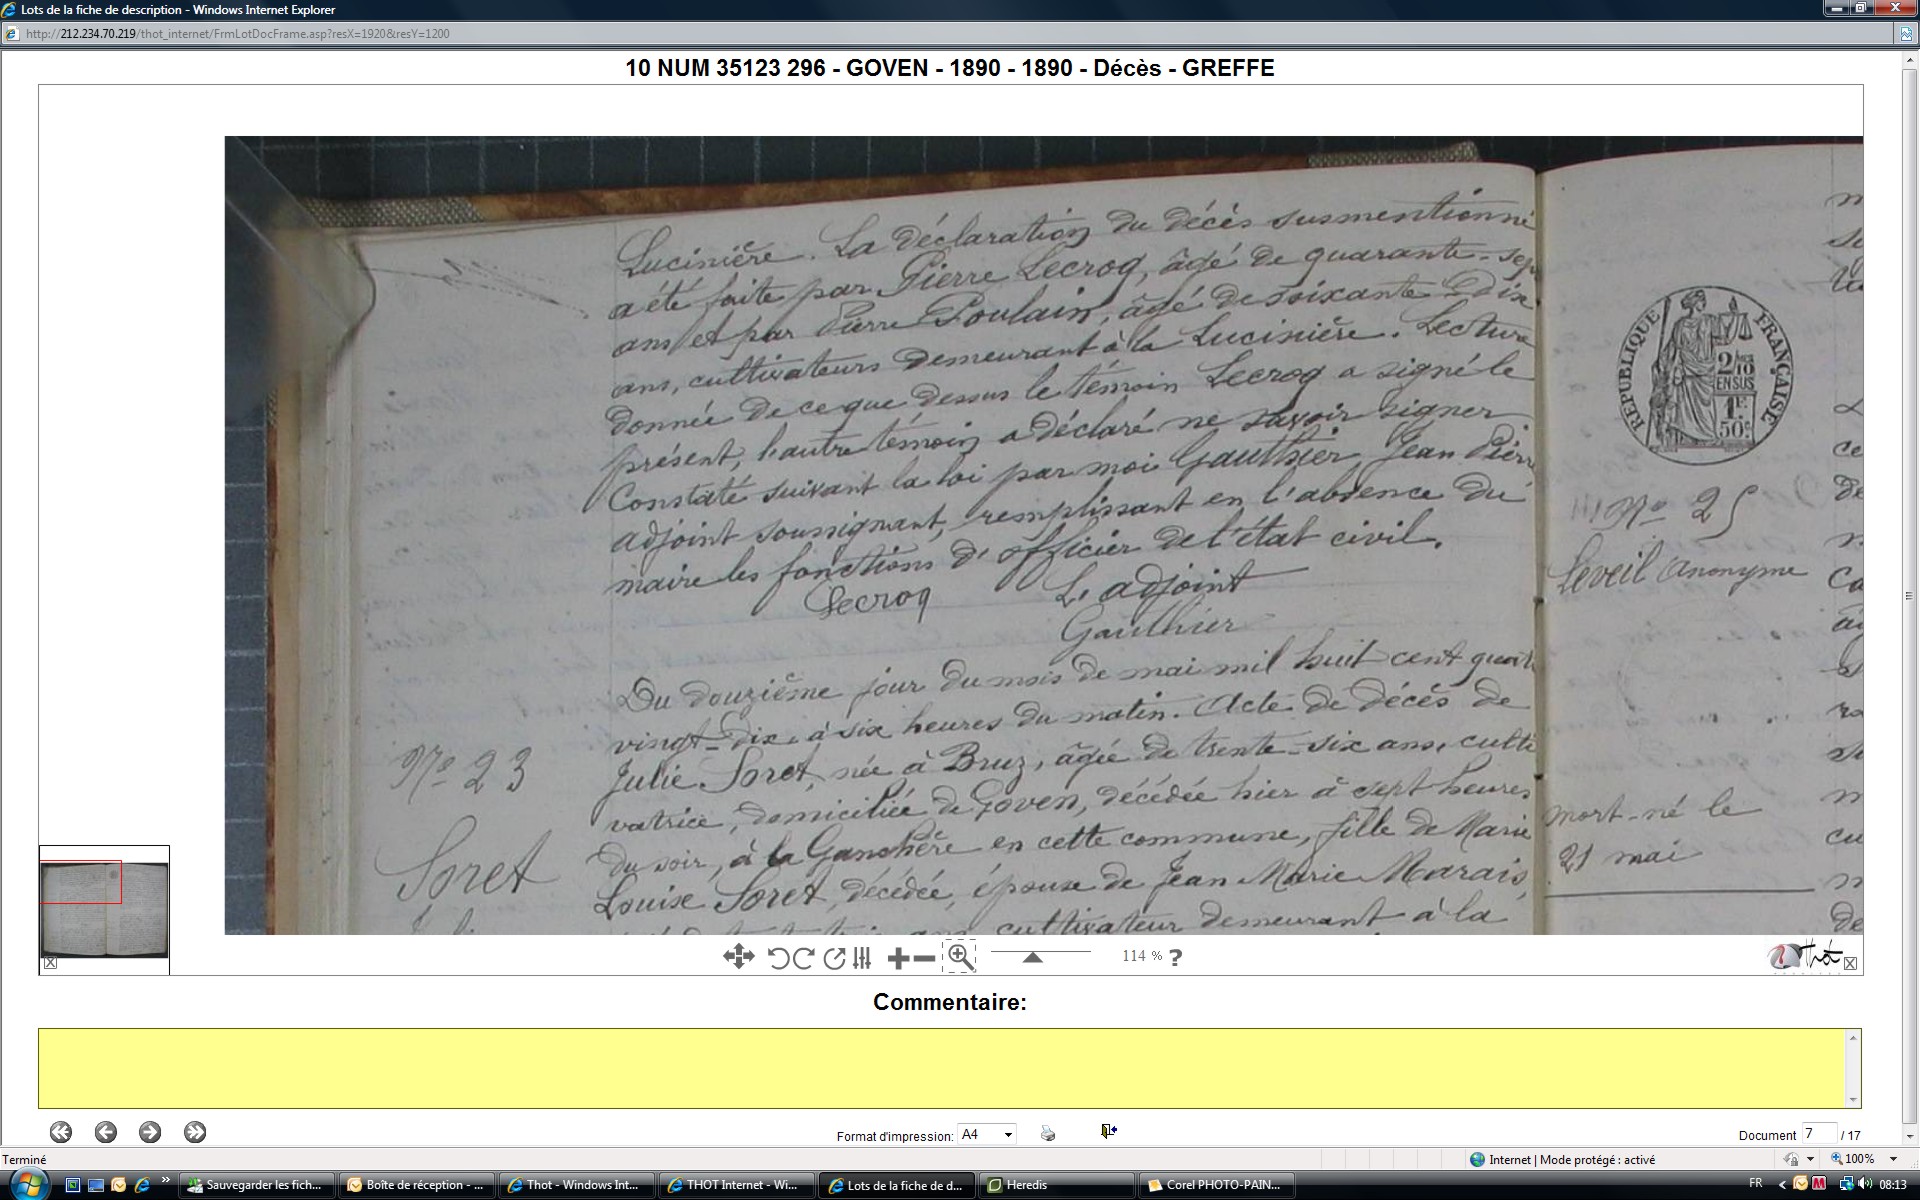 Lots de la fiche de description - Windows Internet Explorer
http://212.234.70.219/thot_internet/FrmLotDocFrame.asp?resX=1920&resY=1200
10 NUM 35123 296 - GOVEN - 1890 - 1890 - Décès - GREFFE
Lucinière. La déclaration du décès susmentionné
a été faite par Pierre Lecroq, âgé de quarante-sep
ans et par Pierre Poulain, âgé de soixante-dix
ans, cultivateurs demeurant à la Lucinière. Lecture
donnée de ce que dessus le témoin Lecroq a signé le
présent, l'autre témoin a déclaré ne savoir signer
Constaté suivant la loi par moi Gauthier Jean Pierre
adjoint soussignant, remplissant en l'absence du
maire les fonctions d'officier de l'état civil.
Lecroq L'adjoint
Gauthier
Du douzième jour du mois de mai mil huit cent quatre
vingt-dix, à six heures du matin. Acte de décès de
Julie Soret, née à Bruz, âgée de trente-six ans, culti
vatrice, domiciliée de Goven, décédée hier à sept heures
du soir, à la en cette commune, fille de Marie
Louise Soret, décédée, épouse de Jean Marie Marais,
ans, cultivateur demeurant à la
No 23
Soret
RÉPUBLIQUE FRANÇAISE
2/10
EN SUS
1F
50c
No 25
Leveil anonyme
mort-né le
21 mai
114 % ?
Thot
Commentaire:
Format d'impression: A4
Document 7 / 17
Terminé
Internet | Mode protégé : activé
100%
Sauvegarder les fich...
Boîte de réception - ...
Thot - Windows Int...
THOT Internet - Wi...
Lots de la fiche de d...
Heredis
Corel PHOTO-PAIN...
FR
08:13